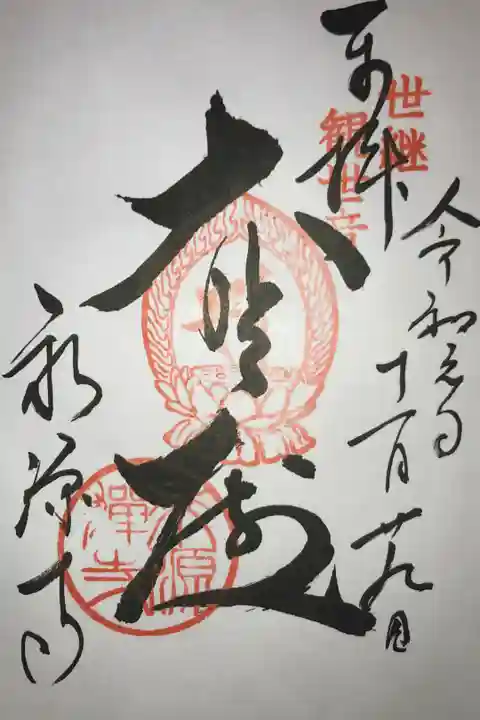 令和元年十一月廿九日
奉拝
世継
観世音
大悲殿
永源寺
永源
禪寺